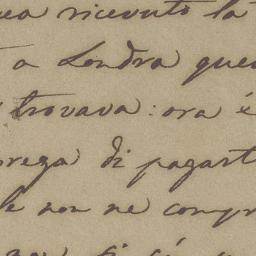 ricevuto la
a Londra que
trovava: ora è
prega di pagart
le non ne compr